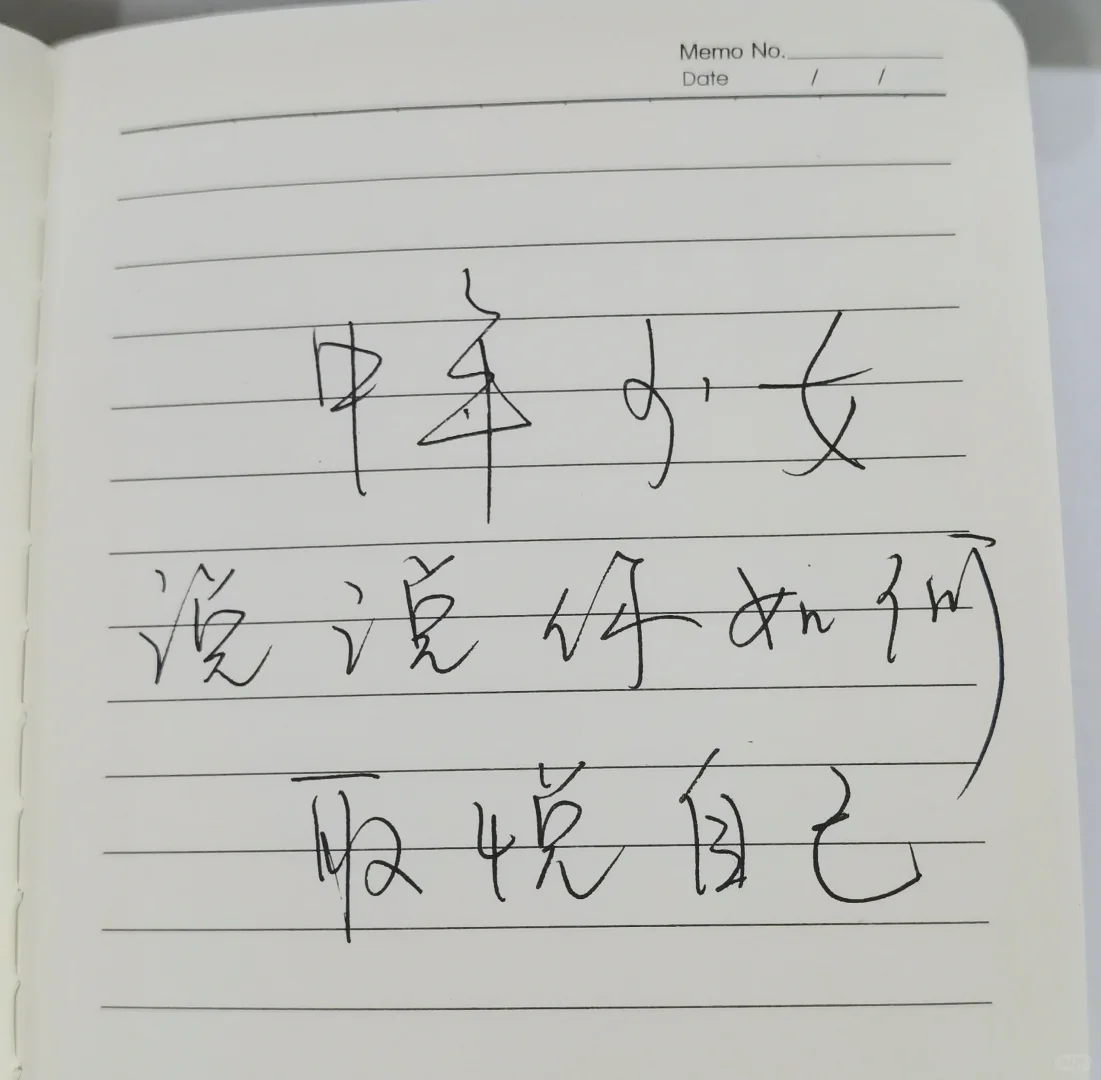 Memo No.
Date / /
中年少女
说说你如何
取悦自己